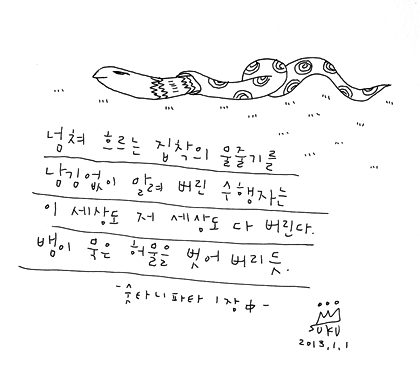 넘쳐 흐르는 집착의 물줄기를
남김없이 말려 버린 수행자는
이 세상도 저 세상도 다 버린다.
뱀이 묵은 허물을 벗어 버리듯.
-숫타니파타 1장 中-
SUKU
2013.1.1